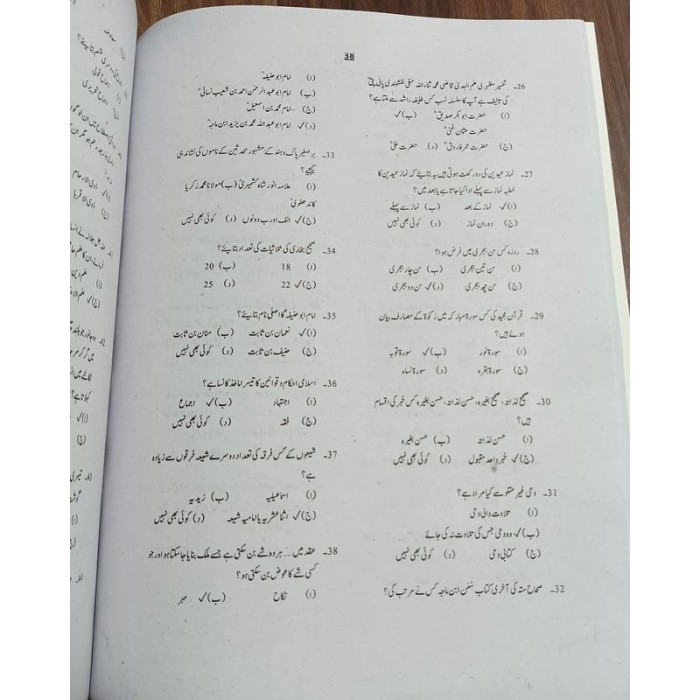 38
26۔ تفسیر مظہری علم الہدیٰ قاضی محمد ثناء اللہ حنفی نقشبندی پانی پتی
کی تالیف ہے آپ کا سلسلہ نسب کس خلیفہ راشد سے ملتا ہے؟
(ا) حضرت ابو بکر صدیقؓ (ب)✓
حضرت عثمان غنیؓ
(ج) حضرت عمر فاروقؓ (د) حضرت علیؓ
27۔ نماز عیدین کی دو رکعت ہوتی ہیں یہ بتایئے کہ نماز عیدین کا
خطبہ نماز سے پہلے ادا کیا جاتا ہے یا بعد میں؟
(ا)✓ نماز کے بعد (ب) نماز سے پہلے
(ج) دوران نماز (د) کوئی بھی نہیں
28۔ روزہ کس سن ہجری میں فرض ہوا؟
(ا) سن تین ہجری (ب) سن چار ہجری
(ج) سن چھ ہجری (د)✓ سن دو ہجری
29۔ قرآن مجید کی کس سورۃ مبارکہ میں زکوٰۃ کے مصارف بیان
ہوئے ہیں؟
(ا) سورۃ نور (ب)✓ سورۃ توبہ
(ج) سورۃ بقرہ (د) سورۃ نساء
30۔ صحیح لذاتہ، صحیح بغیرہ، حسن لذاتہ، حسن بغیرہ کس خبر کی اقسام
ہیں؟
(ا) حسن لذاتہ (ب) حسن بغیرہ
(ج)✓ خبر واحد مقبول (د) کوئی بھی نہیں
31۔ وحی غیر متلو سے کیا مراد ہے؟
(ا) تلاوت والی وحی
(ب)✓ وہ وحی جس کی تلاوت نہ کی جائے
(ج) کتابی وحی (د) کوئی بھی نہیں
32۔ صحاح ستہ کی آخری کتاب سُنن ابن ماجہ کس نے مرتب کی؟
(ا) امام ابو حنیفہؒ
(ب) امام ابو عبد الرحمٰن احمد بن شعیب نسائیؒ
(ج) امام محمد بن اسمٰعیلؒ
(د)✓ امام ابو عبد اللہ محمد بن یزید ابن ماجہؒ
33۔ برصغیر پاک و ہند کے مشہور محدثین کے ناموں کی نشاندہی
کیجیے؟
(ا) علامہ انور شاہ کشمیریؒ (ب) مولانا محمد زکریا
کاندھلویؒ
(ج)✓ الف اور ب دونوں (د) کوئی بھی نہیں
34۔ صحیح بخاری کی ثلاثیات کی تعداد بتایئے؟
(ا) 18 (ب) 20
(ج)✓ 22 (د) 25
35۔ امام ابو حنیفہؒ کا اصلی نام بتایئے؟
(ا)✓ نعمان بن ثابت (ب) منان بن ثابت
(ج) حنیف بن ثابت (د) کوئی بھی نہیں
36۔ اسلامی احکام و قوانین کا تیسرا ماخذ کونسا ہے؟
(ا) اجتہاد (ب)✓ اجماع
(ج) فقہ (د) کوئی بھی نہیں
37۔ شیعوں کے کس فرقہ کی تعداد دوسرے شیعہ فرقوں سے زیادہ
ہے؟
(ا) اسماعیلیہ (ب) زیدیہ
(ج)✓ اثنا عشریہ یا امامیہ شیعہ (د) کوئی بھی نہیں
38۔ عقد میں ..... ہر وہ شے بن سکتی ہے جسے ملک بنایا جا سکتا ہو اور جو
کسی شے کا عوض بن سکتی ہو؟
(ا) نکاح (ب)✓ مہر